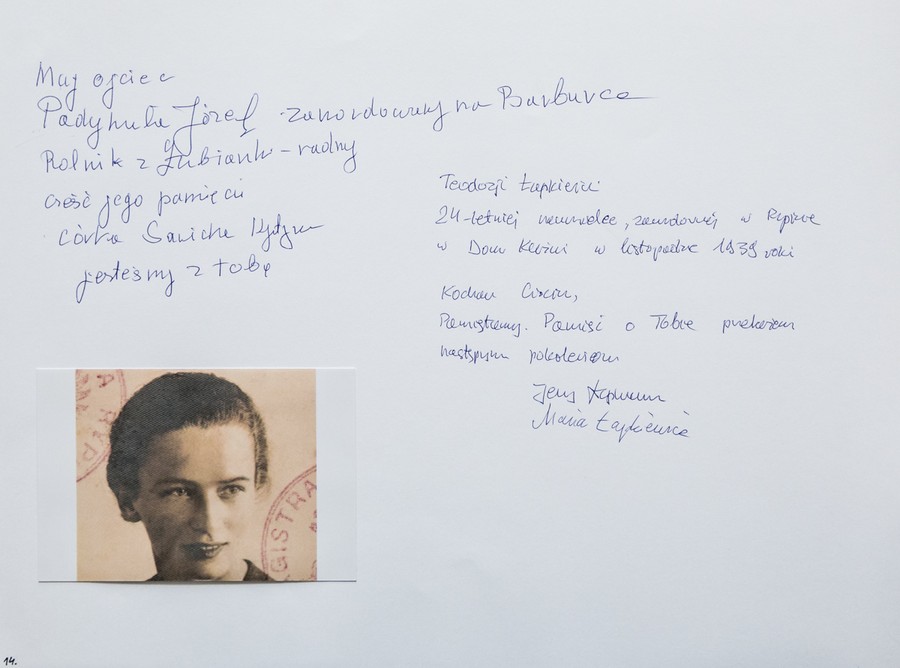 Muj ojciec
Józef zamordowany na Barbarce
Rolnik z Łubianki - radny
cześć jego pamięci
córka Sawicka
jesteśmy z tobą
Teodozji Łapkiewicz
24-letniej nauczycielce, zamordowanej w Rypinie
w Domu Kaźni w listopadzie 1939 roku
Kochana Ciociu,
Pamiętamy. Pamięć o Tobie przekażemy
następnym pokoleniom
Jerzy
Maria Łapkiewicz
GISTRA
14.